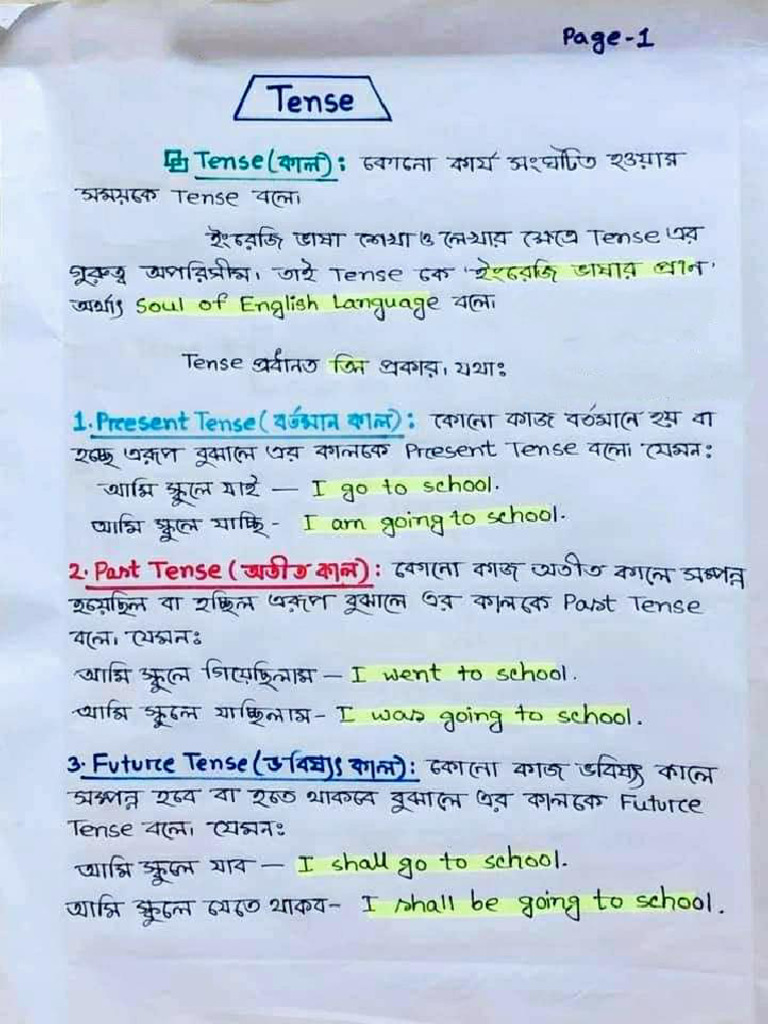 Page-1
Tense
Tense (কাল): কোনো কার্য সংঘটিত হওয়ার
সময়কে Tense বলে।
ইংরেজি ভাষা শেখা ও লেখার ক্ষেত্রে Tense এর
গুরুত্ব অপরিসীম। তাই Tense কে 'ইংরেজি ভাষার প্রান'
অর্থাৎ Soul of English Language বলে।
Tense প্রধানত তিন প্রকার। যথাঃ
1. Present Tense (বর্তমান কাল): কোনো কাজ বর্তমানে হয় বা
হচ্ছে এরূপ বুঝালে এর কালকে Present Tense বলে। যেমন:
আমি স্কুলে যাই — I go to school.
আমি স্কুলে যাচ্ছি - I am going to school.
2. Past Tense (অতীত কাল): কোনো কাজ অতীত কালে সম্পন্ন
হয়েছিল বা হচ্ছিল এরূপ বুঝালে এর কালকে Past Tense
বলে। যেমনঃ
আমি স্কুলে গিয়েছিলাম — I went to school.
আমি স্কুলে যাচ্ছিলাম - I was going to school.
3. Future Tense (ভবিষ্যৎ কাল): কোনো কাজ ভবিষ্যৎ কালে
সম্পন্ন হবে বা হতে থাকবে বুঝালে এর কালকে Future
Tense বলে। যেমনঃ
আমি স্কুলে যাব — I shall go to school.
আমি স্কুলে যেতে থাকব - I shall be going to school.